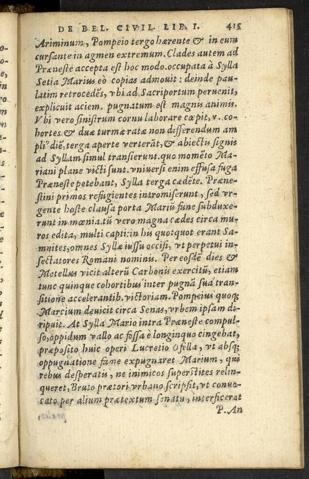 DE BEL. CIVIL. LIB. I. 415
Ariminum, Pompeio tergo hærente & in eum in
cursante in agmen extremum. Clades autem ad
Præneste accepta est hoc modo. occupata à Sylla
Setia Marius eò copias admouit: deinde pau-
latim retrocedẽs, vbi ad Sacriportum peruenit,
explicuit aciem. pugnatum est magnis animis.
Vbi vero sinistrum cornu laborare cœpit, v. co-
hortes & duæ turmæ rata non differendum am
pli° diẽ, terga aperte verterãt, & abiectis signis
ad Syllam simul transierunt. quo momẽto Ma-
riani plane victi sunt. vniuersi enim effusa fuga
Præneste petebant, Sylla terga cædẽte. Præne-
stini primos refugientes intromiserunt, sed vr-
gente hoste clausa porta Mariũ fune subduxe-
runt in mœnia. tũ vero magna cædes circa mu-
ros edita, multi capti: in his quotquot erant Sa-
mnites, omnes Syllæ iussu occisi, vt perpetui in-
sectatores Romani nominis. Per eosdẽ dies &
Metellus vicit alterũ Carbonis exercitũ, etiam
tunc quinque cohortibus inter pugnã sua tran-
sitione accelerantib. victoriam. Pompeius quoq;
Marcium deuicit circa Senas, vrbem ipsam di-
ripuit. At Sylla Mario intra Præneste compul-
so, oppidum vallo ac fossa è longinquo cingebat,
præposito huic operi Lucretio Ofella, vt absq;
oppugnatione fame expugnaret Marium, qui
rebus desperatis, ne inimicos superstites relin-
queret, Bruto prætori vrbano scripsit, vt conuo-
cato per alium prætextum senatu, interficeret
P. An